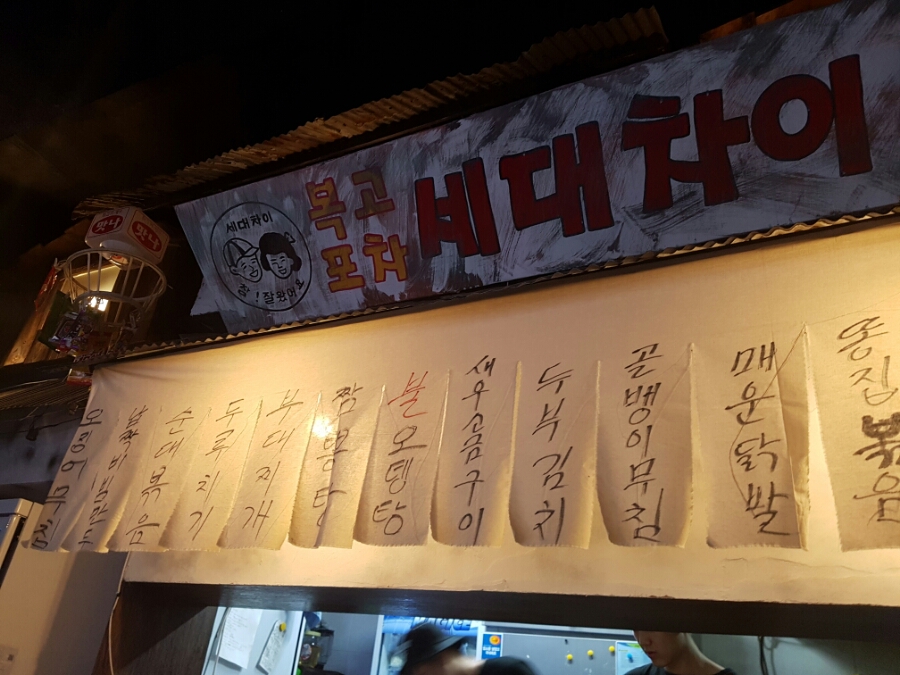 맛나
맛나
세대차이
참! 잘왔어요
복고
포차
세대차이
순대볶음
두루치기
부대찌개
짬뽕탕
불오뎅탕
새우소금구이
두부김치
골뱅이무침
매운닭발
똥집볶음